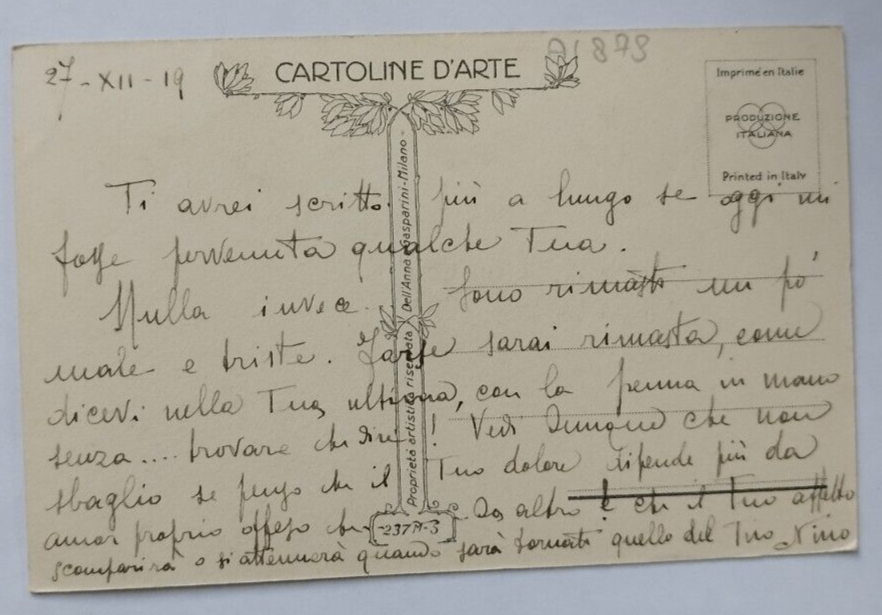 27-XII-19
CARTOLINE D'ARTE
21873
Imprimé en Italie
PRODUZIONE
ITALIANA
Printed in Italy
Proprietà artistica riservata Dell'Anna & Gasparini-Milano-
-237A-3
Ti avrei scritto più a lungo se oggi mi
fosse pervenuta qualche Tua.
Nulla invece. Sono rimasto un pò
male e triste. Forse sarai rimasta, come
dicevi nella Tua ultima, con la penna in mano
senza.... trovare che dire! Vedi dunque che non
sbaglio se penso che il Tuo dolore dipende più da
amor proprio offeso che da altro e che il Tuo affetto
scomparirà o si attenuerà quando sarà tornato quello del Tuo Nino